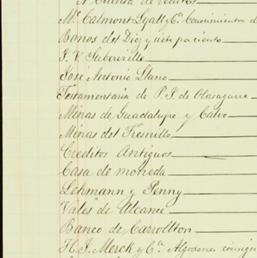 Mr. Calmont Lyall y Ca. Consimientos d
Bonos del Diez y siete pr ciento
J. V. Suberville
José Antonio Llano
Testamentaria de P. J. de Olasagarre
Minas de Guadalupe y Calvo
Minas del Fresnillo
Creditos Antiguos
Casa de moneda
Lehmann y Penny
Vales de Alcance
Banco de Carrollton
H. J. Merck y Ca. Algodones consig